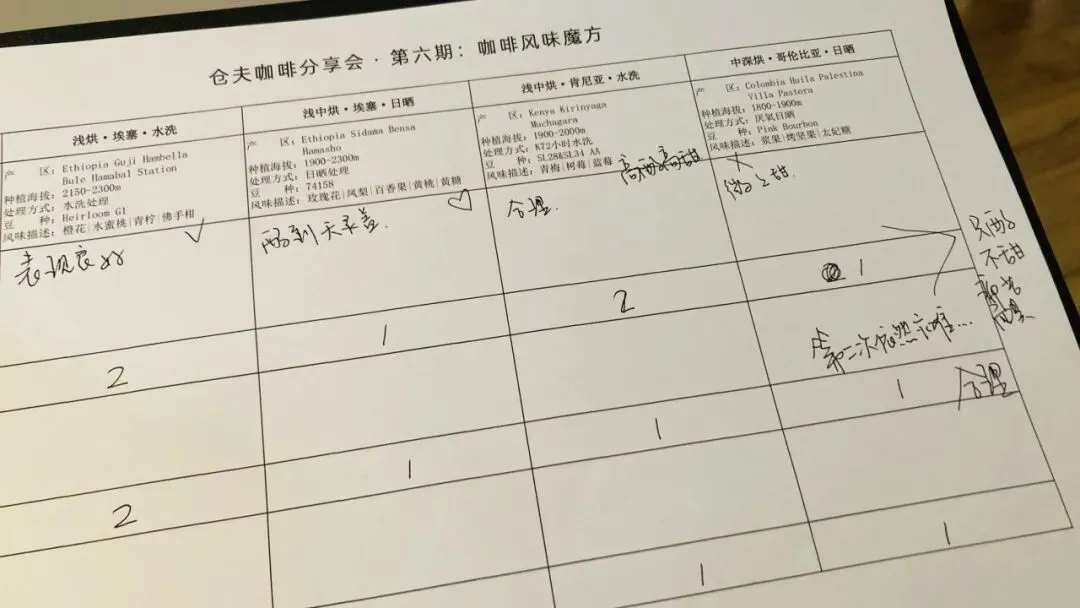 仓夫咖啡分享会·第六期：咖啡风味魔方
浅烘·埃塞·水洗
产 区：Ethiopia Guji Hambella
Bule Hamabal Station
种植海拔：2150-2300m
处理方式：水洗处理
豆 种：Heirloom G1
风味描述：橙花|水蜜桃|青柠|佛手柑
浅中烘·埃塞·日晒
产 区：Ethiopia Sidama Bensa
Hamasho
种植海拔：1900-2300m
处理方式：日晒处理
豆 种：74158
风味描述：玫瑰花|凤梨|百香果|黄桃|黄糖
浅中烘·肯尼亚·水洗
产 区：Kenya Kirinyaga
Muchagara
种植海拔：1900-2000m
处理方式：K72小时水洗
豆 种：SL28&SL34 AA
风味描述：青梅|树莓|蓝莓
中深烘·哥伦比亚·日晒
产 区：Colombia Huila Palestina
Villa Pastora
种植海拔：1800-1900m
处理方式：厌氧日晒
豆 种：Pink Bourbon
风味描述：浆果|烤坚果|太妃糖
表现良好
酸到天灵盖.
合理.
高酸高甜
微微甜.
只酸
不甜
2
1
2
1
第二次依然
合理
2
1
1
1
1
1